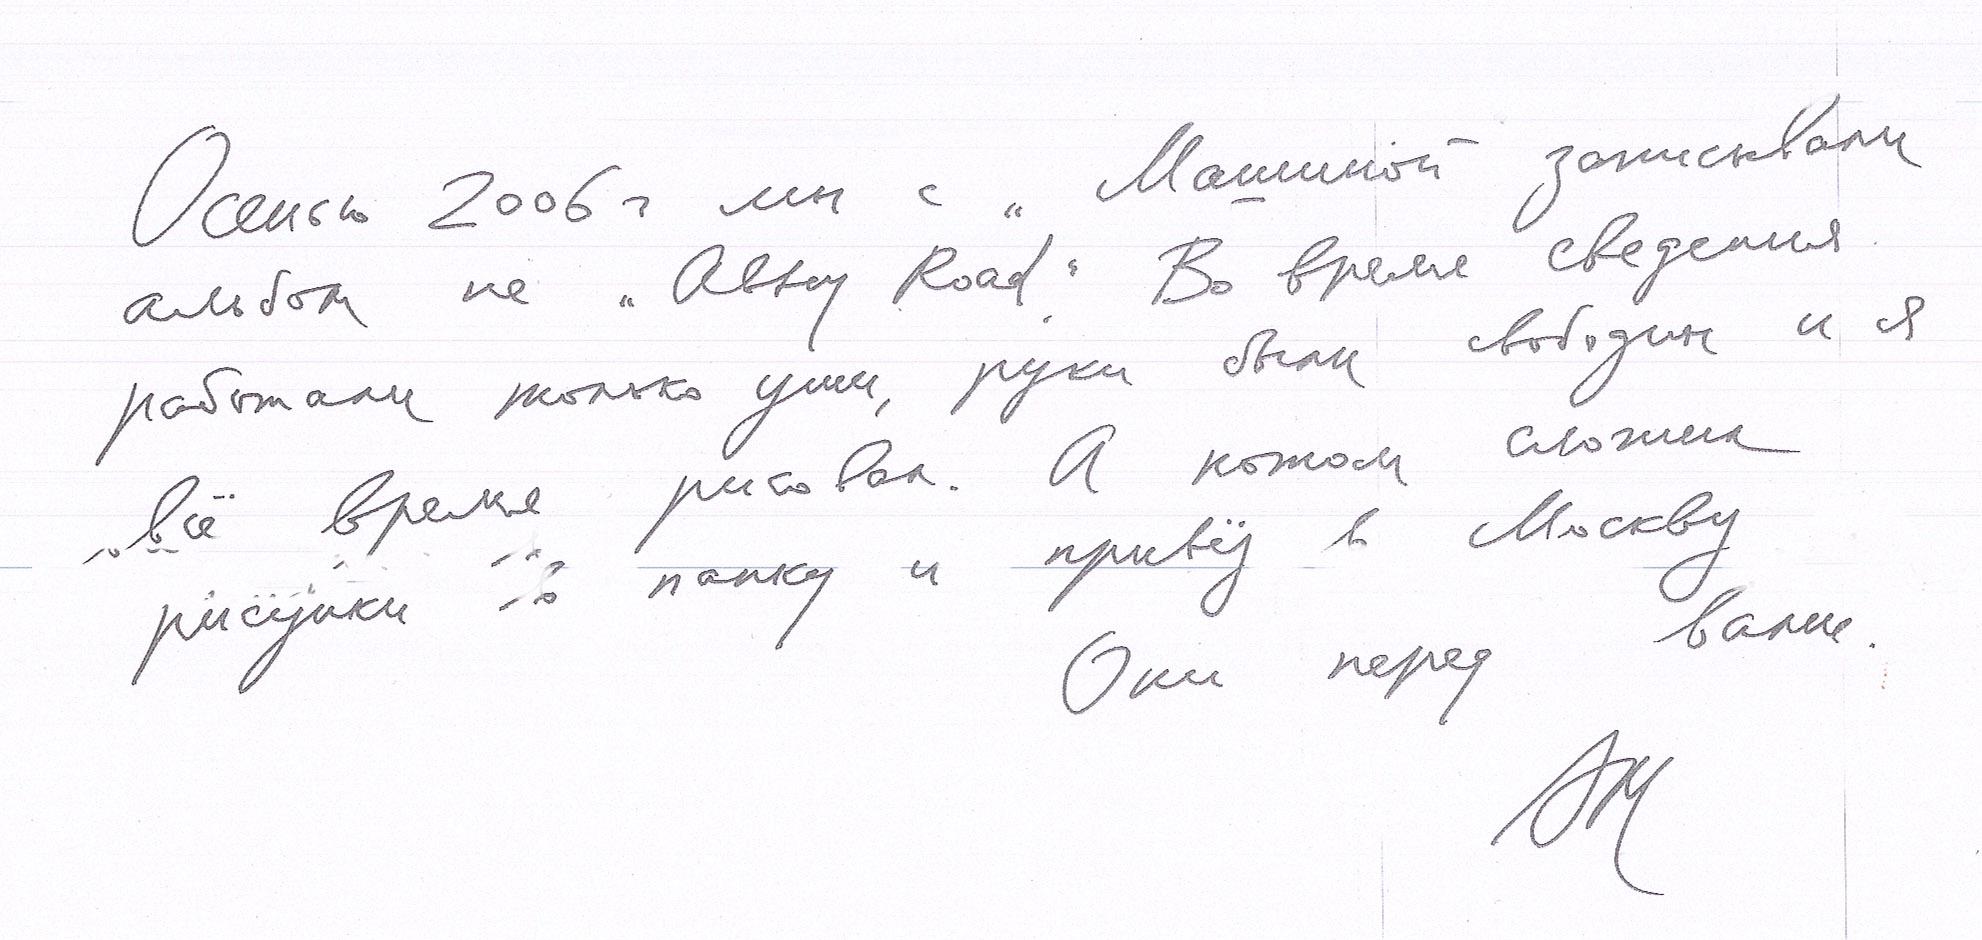 Осенью 2006 г мы с „Машиной записывали
альбом на „Abbey Road“. Во время сведения
работали только уши, руки были свободны и я
всё время рисовал. А потом сложил
рисунки в папку и привёз в Москву
Они перед вами.
АМ